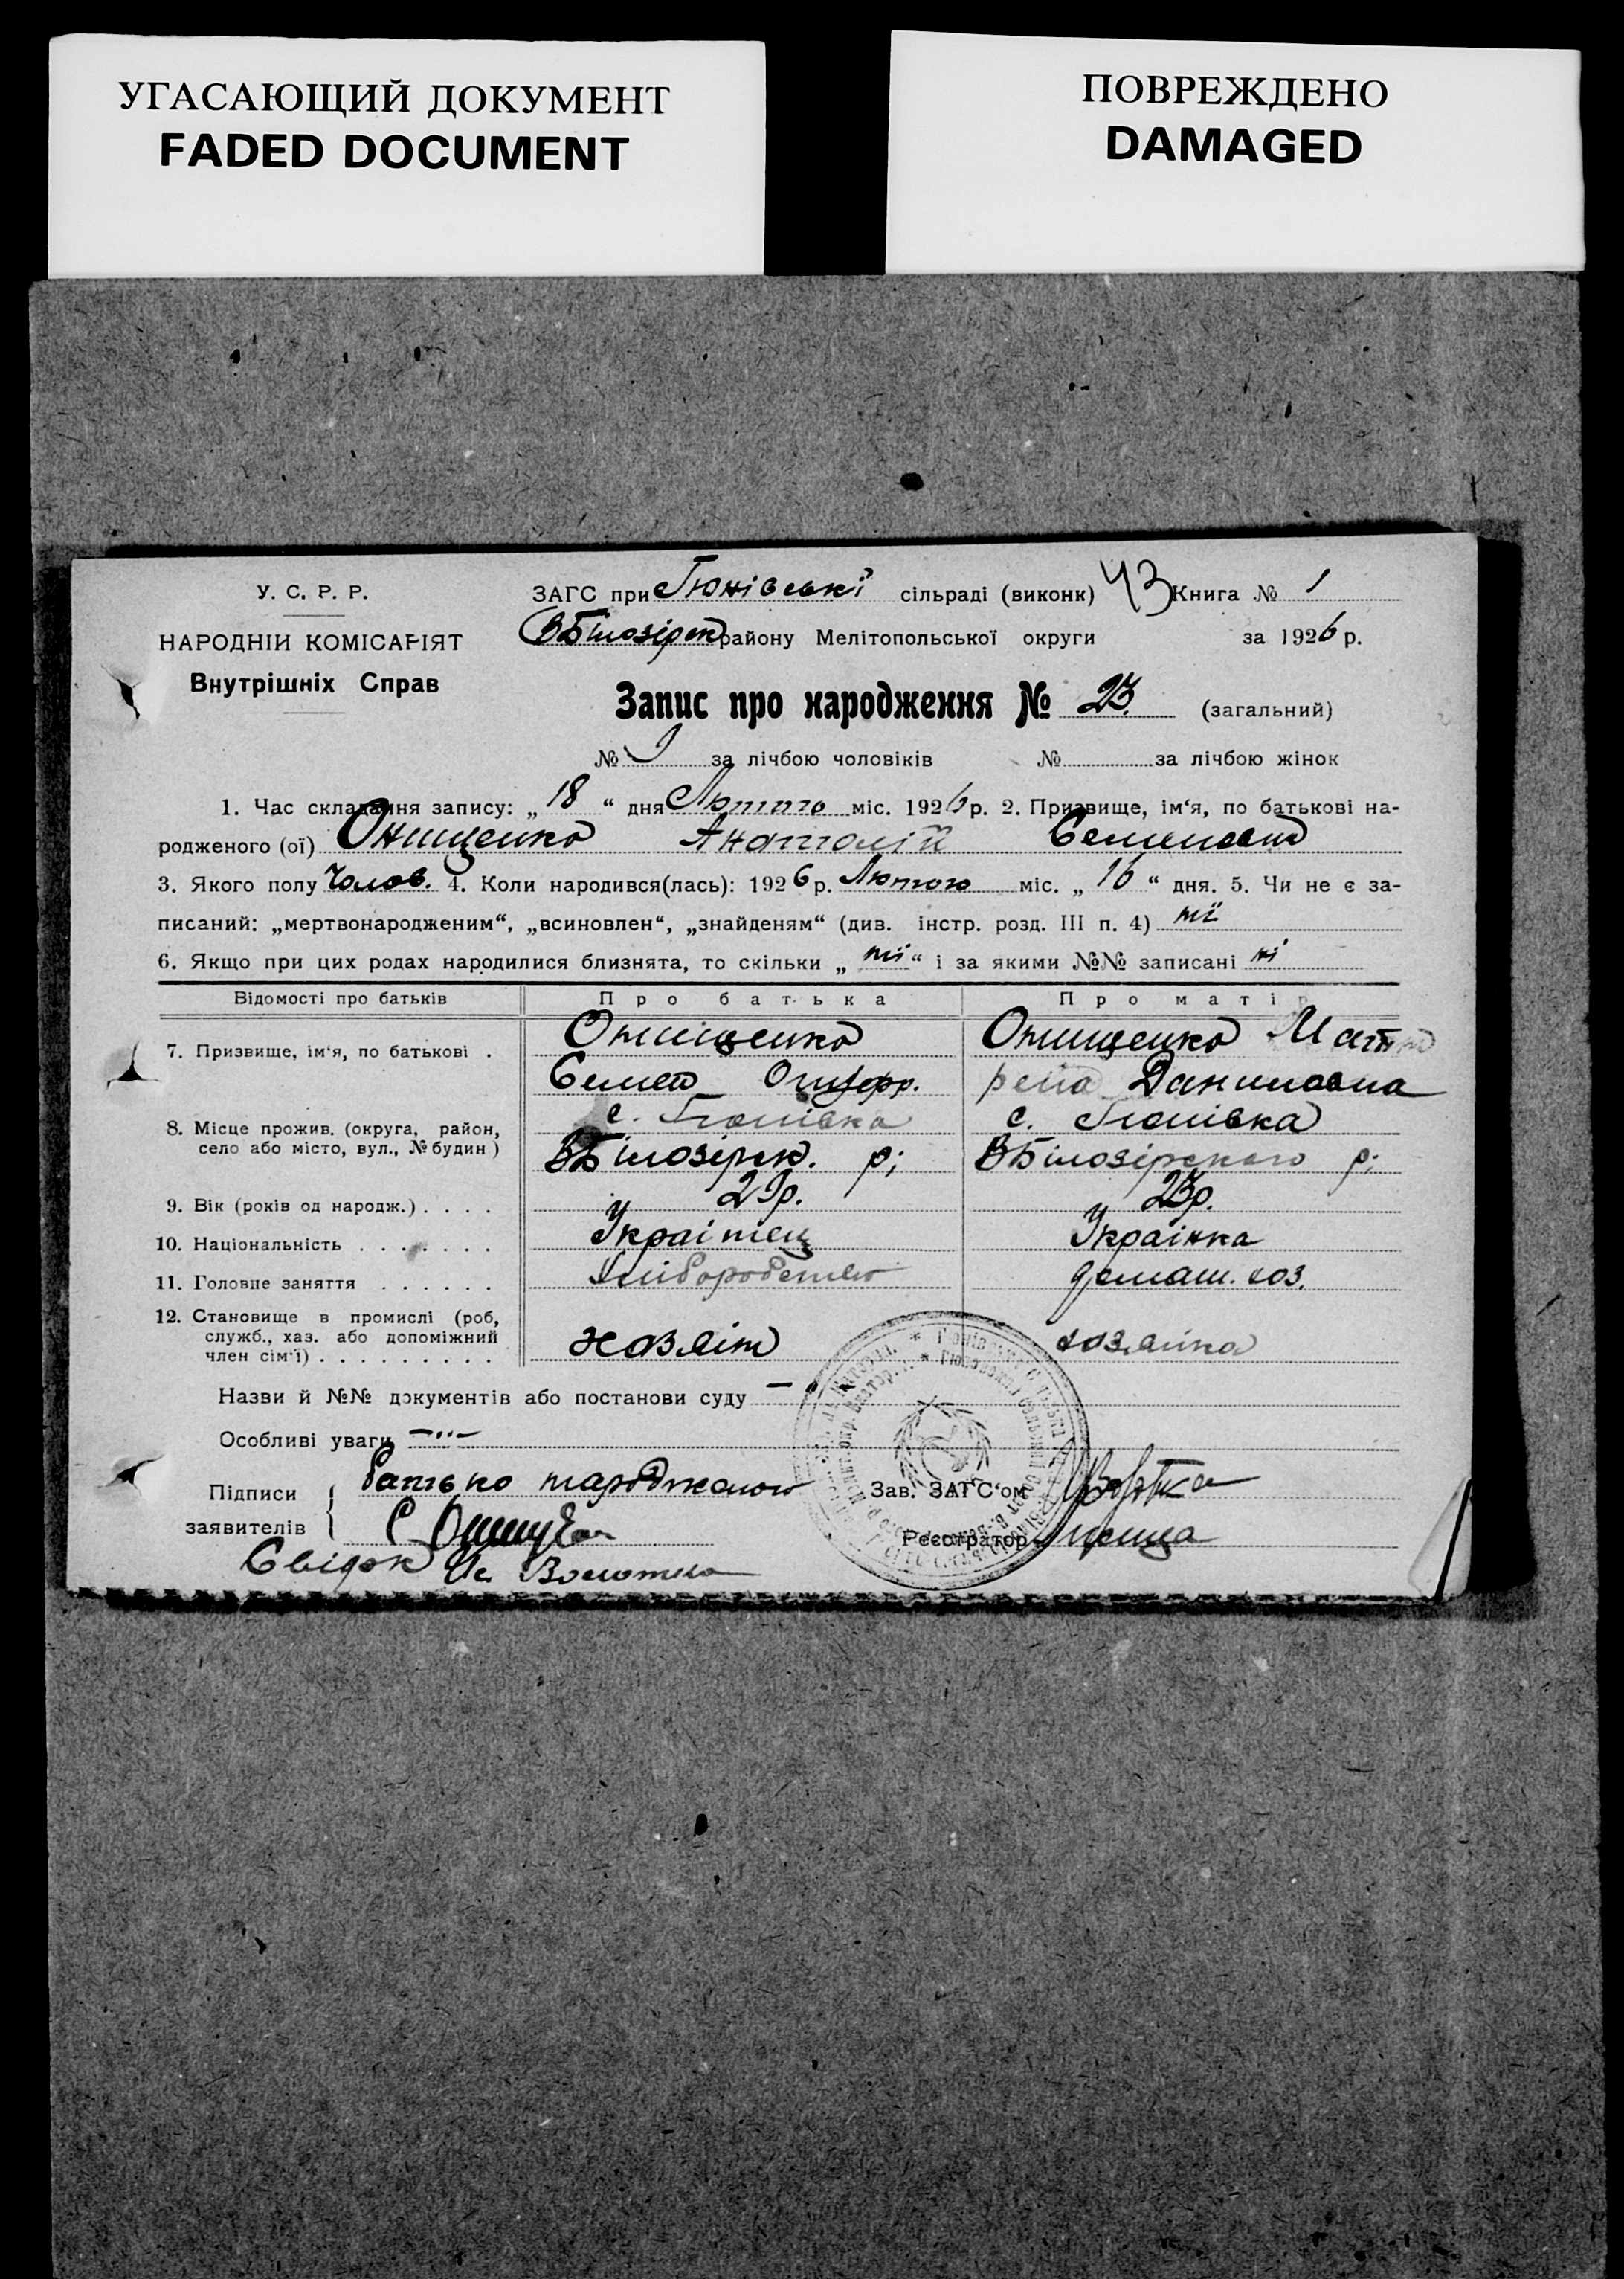 УГАСАЮЩИЙ ДОКУМЕНТ
FADED DOCUMENT
ПОВРЕЖДЕНО
DAMAGED
У. С. Р. Р.
НАРОДНІЙ КОМІСАРІЯТ
Внутрішніх Справ
ЗАГС при Гюнівські сільраді (виконк) 43 Книга № 1
ВБілозірск району Мелітопольської округи за 1926 р.
Запис про народження № 23 (загальний)
№ 9 за лічбою чоловіків № за лічбою жінок
1. Час складання запису: „ 18 “ дня Лютого міс. 1926 р. 2. Призвище, ім‘я, по батькові на-
родженого (ої) Онищенко Анатолій Семенович
3. Якого полу Чолов. 4. Коли народився(лась): 1926 р. Лютого міс. „ 16 “ дня. 5. Чи не є за-
писаний: „мертвонародженим“, „всиновлен“, „знайденям“ (див. інстр. розд. III п. 4) ні
6. Якщо при цих родах народилися близнята, то скільки „ ні “ і за якими №№ записані ні
Відомості про батьків Про батька Про матір
7. Призвище, ім‘я, по батькові . Онищенко Онищенко Мат
Семен рена Даниловна
8. Місце прожив. (округа, район, с. Гюнівка с. Гюнівка
село або місто, вул., № будин) ВБілозірск. р; ВБілозірского р;
9. Вік (років од народж.) . . . . 29р. 23р.
10. Національність . . . . . . . Украінец Украінка
11. Головне заняття . . . . . . Хліборобство домаш. хоз.
12. Становище в промислі (роб,
служб., хаз. або допоміжний
член сім‘ї) . . . . . . . . . хозяін хозяйка
Назви й №№ документів або постанови суду —
Особливі уваги —"—
Підписи батько народженого Зав. ЗАГС‘ом
заявителів С Онищен Реєстратор
Свідок